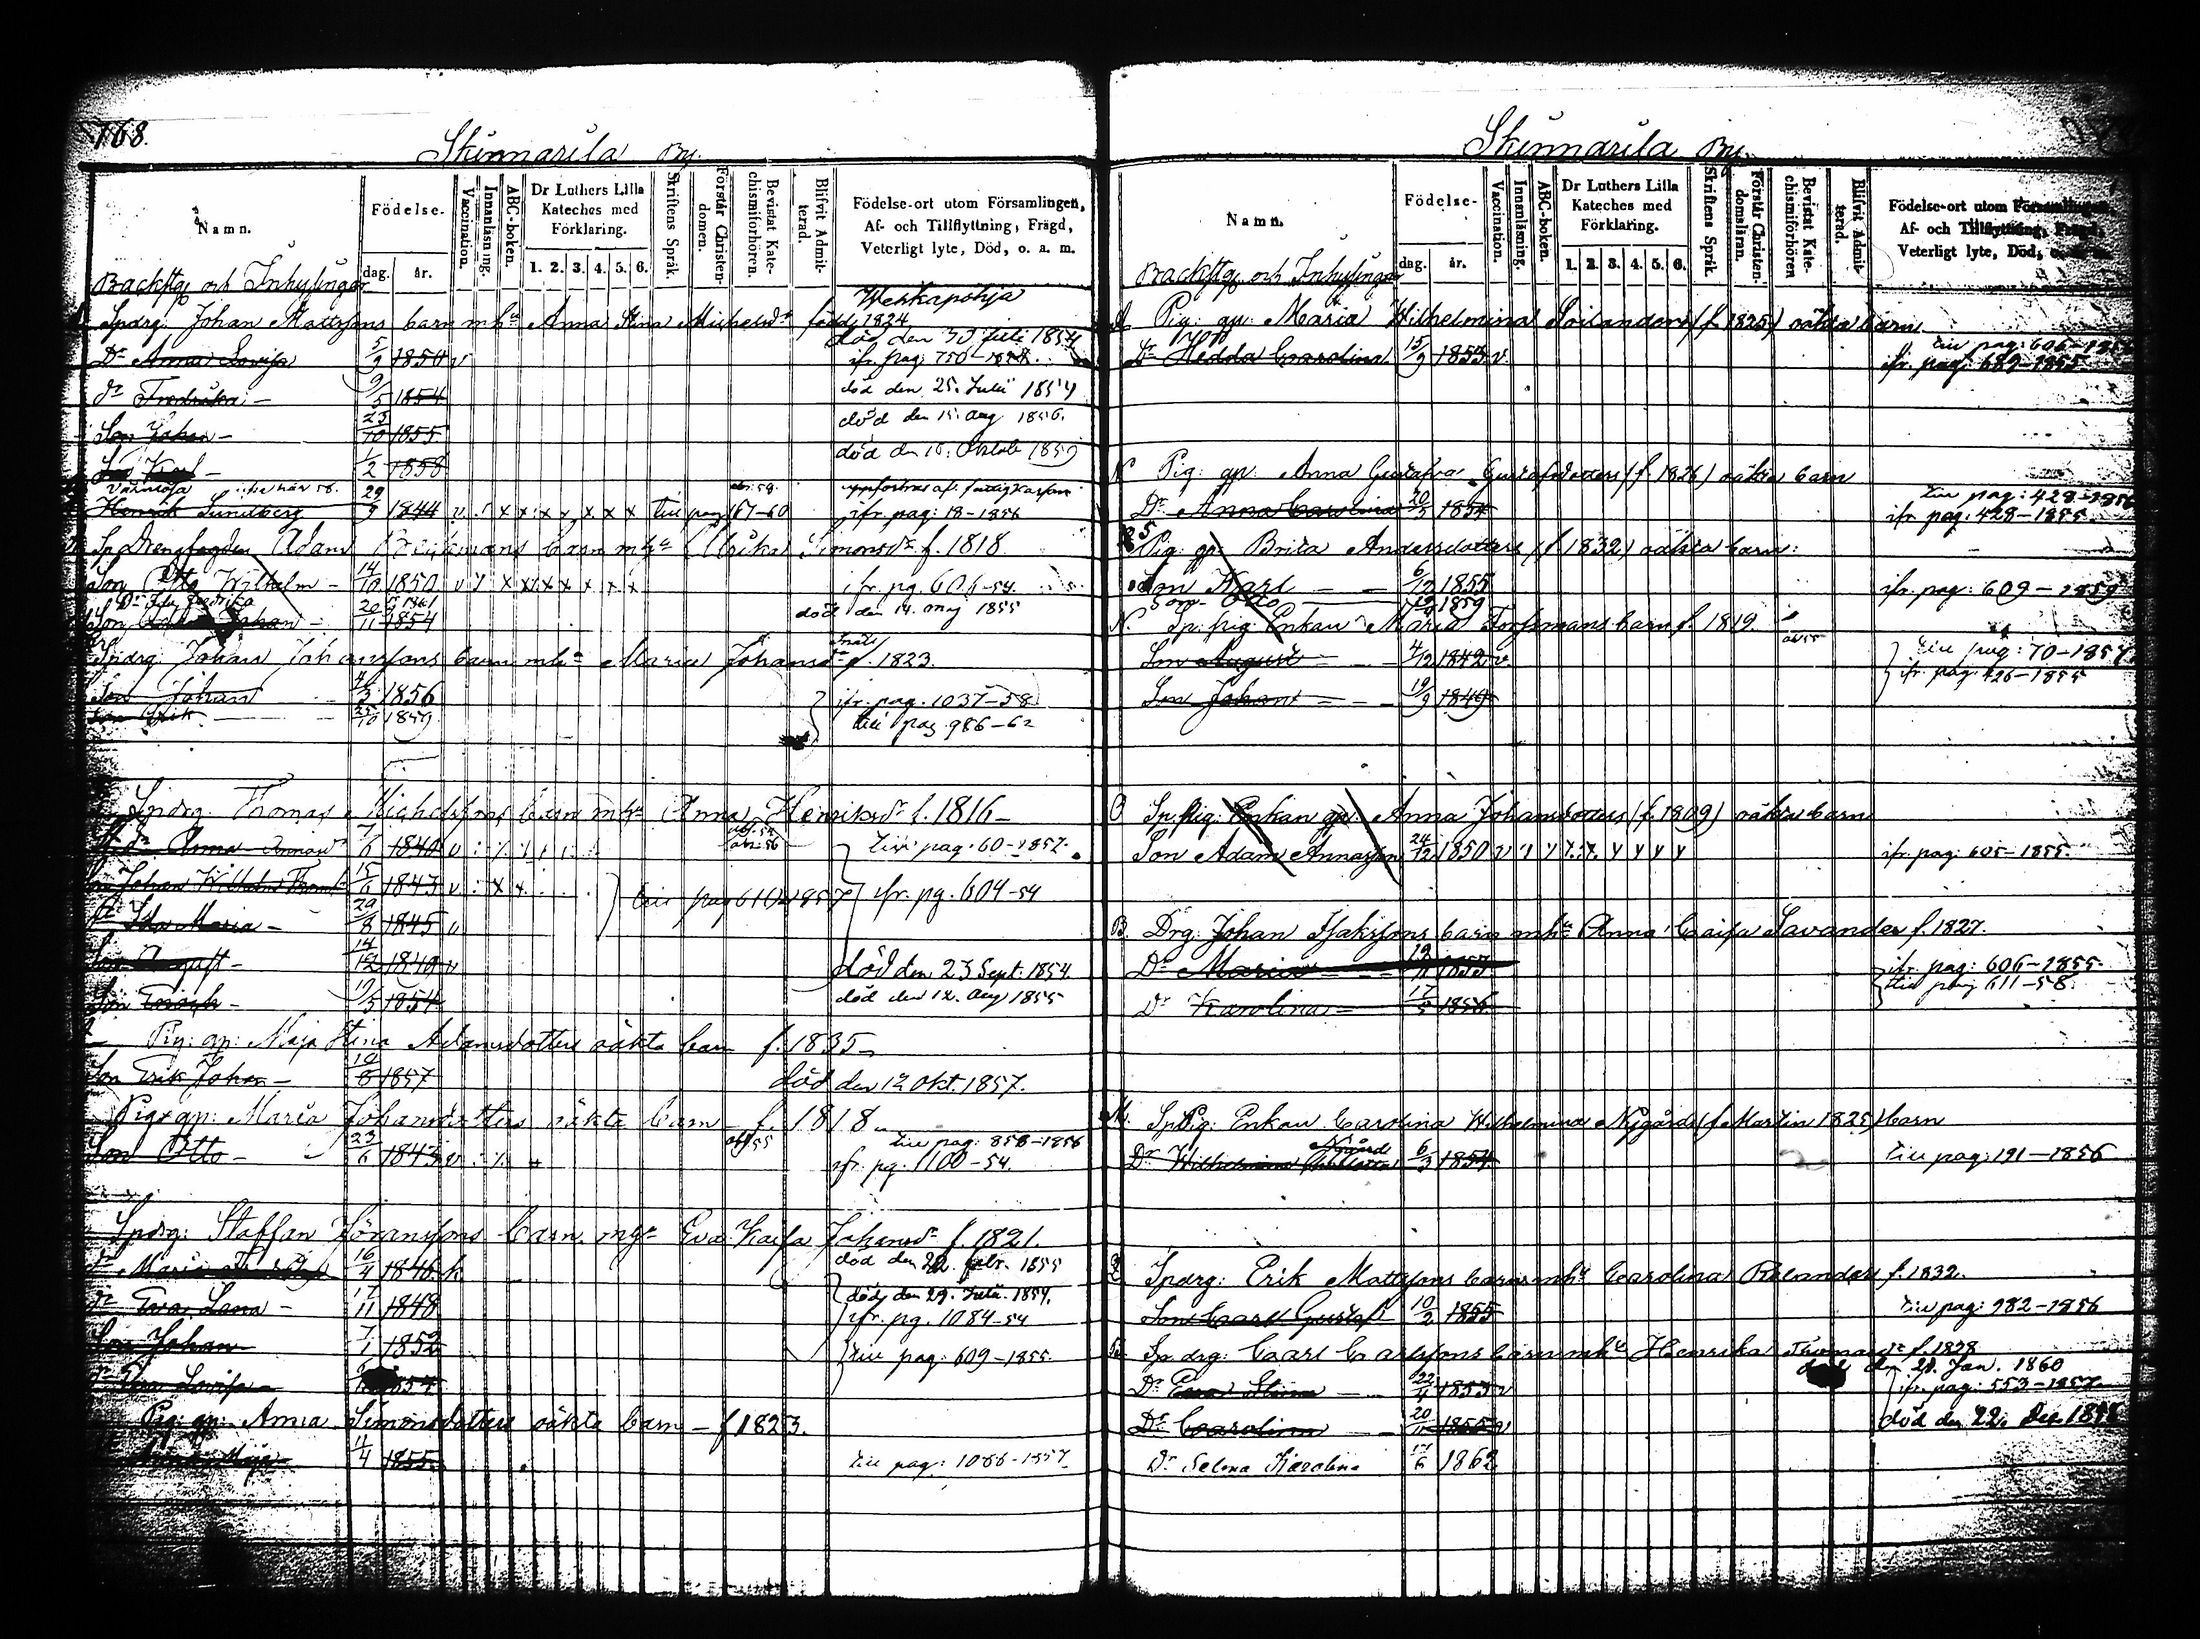 168.
Skinnarila By.
Namn.
Födelse-
dag. år.
Vaccination.
Innanläsning.
ABC-boken.
Dr Luthers Lilla Kateches med Förklaring.
1. 2. 3. 4. 5. 6.
Skriftens Språk.
Förstår Christen-domen.
Bevistat Kate-chismiförhören.
Blifvit Admit-terad.
Födelse-ort utom Församlingen,
Af- och Tillflyttning, Frägd,
Veterligt lyte, Död, o. a. m.
Backstg och Inhysingar
Wehkapohja
Spdrg. Johan Mattssons barn mh Anna Stina Michelsdr född 1824
död den 30 Juli 1854
Dr Anna Lovisa 5/9 1850 v ifr. pag: 750-
dr Fredrika - 9/5 1854 död den 25. Juli 1854
Son Johan - 23/10 1855 död den 15. Aug 1856.
Son Karl - 1/2 1858 död den 16. Oktob 1859
Henrik Sundberg 29/9 1844 v x x x x x x x till pag 167-60 ifr. pag: 18-1856
Adam barn mh Ulrika Simonsdr f. 1818
Son Otto Wilhelm - 14/10 1850 v x x x x x x x ifr pg. 606-54.
Dr Ida Fredrika 1861
Son Johan - 20/11 1854 död den 14. maj 1855
Spdrg Johan Johanssons barn mh Maria Johansdr f. 1823.
Son Johan 4/3 1856 ifr. pag. 1037-58
Son Erik 25/10 1859 till pag 986-62
Spdrg. Thomas Michelssons barn mh Anna Henriksdr f. 1816-
dr Anna 7/6 1840 v till pag. 60-1857.
Son Johan Wilhelm 15/6 1843 v till pag 610-1857 ifr. pg. 604-54
dr Ida Maria - 29/8 1845 v
Son August - 14/12 1849 v död den 23 Sept. 1854.
Son - 19/5 1854 död den 12. Aug 1855
Pig: gp: Maja Stina Adamsdotters oäkta barn f. 1835-
Son Erik Johan - 19/8 1857 död den 12 Okt. 1857.
Pig: gp: Maria Johansdotters oäkta barn - f. 1818.
Son Otto - 23/6 1843 v till pag: 858-1856
ifr. pg. 1100-54.
Spdrg: Staffan Göranssons barn mh Eva Kaisa Johansdr f. 1821.
dr Maria 16/4 1846 död den 22. febr. 1855
dr Eva Lena - 17/11 1848 död den 29. Juli. 1854.
ifr. pg. 1084-54
Son Johan 7/1 1852 till pag: 609-1855.
dr Eva Lovisa - 1854
Pig: gp: Anna Simonsdotters oäkta barn - f 1823.
Anna Maja - 4/4 1855 till pag: 1066-1857
Skinnarila By.
Namn.
Födelse-
dag. år.
Vaccination.
Innanläsning.
ABC-boken.
Dr Luthers Lilla Kateches med Förklaring.
1. 2. 3. 4. 5. 6.
Skriftens Språk.
Förstår Christen-domsläran.
Bevistat Kate-chismiförhören
Blifvit Admit-terad.
Födelse-ort utom Församlingen,
Af- och Tillflyttning, Frägd,
Veterligt lyte, Död, o. a. m.
Backstg och Inhysingar
Pig: gp: Maria Wilhelmina (f. 1825) oäkta barn
till pag: 606-
Dr Hedda Carolina 15/9 1853 v ifr. pag: 689-1855
N. Pig: gp: Anna Gustafva Gustafsdotters (f. 1826) oäkta barn
till pag: 428-1856
Dr Anna Carolina 20/5 1854 ifr pag: 428-1855.
Pig: gp: Brita Andersdotters (f 1832) oäkta barn:
Son Karl - 6/12 1855 ifr. pag: 609-1859
Son Otto 1859
N. Sp: pig: Enkan Maria Forssmans barn f. 1819.
Son August - 4/12 1842 v till pag: 70-1857
Son Johan - 19/9 1849 ifr pag: 426-1855
O Sp. pig: Enkan gp: Anna Johansdotters (f. 1809) oäkta barn
Son Adam Annasson 24/12 1850 v ifr. pag: 605-1855.
B. Drg. Johan Isakssons barn mh Anna Caisa Savander f. 1827.
Dr Maria - 1853 ifr. pag: 606-1855.
till pag 611-58
Dr Karolina - 17/5 1856
M. Sp Pig: Enkan Carolina Wilhelmina Nygårds (f. Martin 1825) barn
Nygård
Dr Wilhelmina 6/3 1854 till pag: 191-1856
Spdrg: Erik Mattssons barn mh Carolina f. 1832.
Son Carl Gustaf 10/2 1855 till pag: 982-1856
Sp. drg: Carl Carlssons barn mh Henrika Thomasdr f. 1828
död den 28. Jan. 1860
Dr Eva Stina - 22/4 1853 v ifr. pag: 553-1857.
Dr Carolina - 20/11 1855 v död den 22. Dec 1858
Dr Selma Karolina 17/6 1862